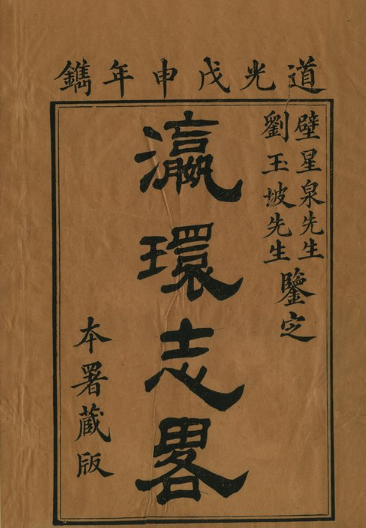 道光戊申年鐫
壁星泉先生
劉玉坡先生
鑒定
瀛環志畧
本署藏版